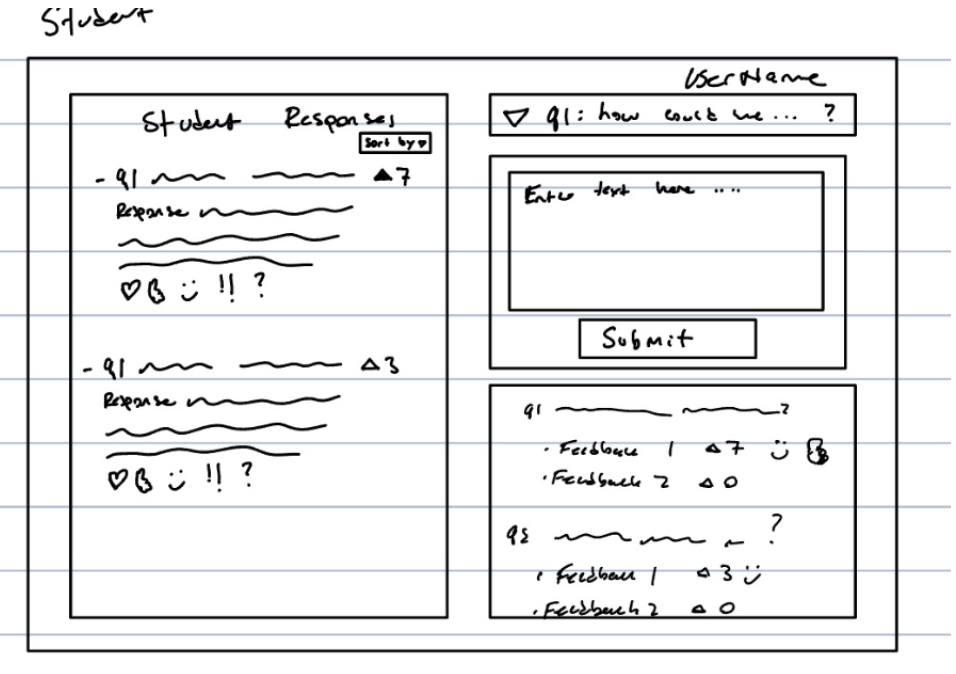 Student
UserName
Student Responses
Sort by
- q1 7
Response
!! ?
- q1 3
Response
!! ?
q1: how could we ... ?
Enter text here ....
Submit
q1 ?
• Feedback 1 7
• Feedback 2 0
q2 ?
• Feedback 1 3
• Feedback 2 0